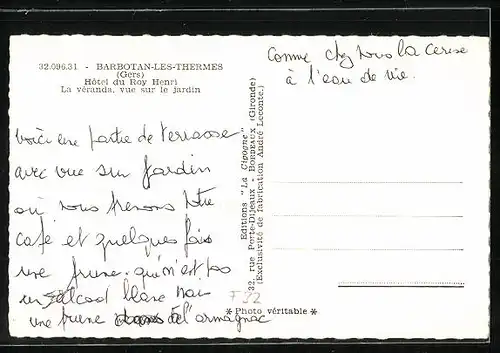 32.096.31 - BARBOTAN-LES-THERMES
(Gers)
Hôtel du Roy Henri
La véranda, vue sur le jardin
Voici une partie de terrasse
avec vue sur jardin
où nous prenons notre
café et quelques fois
une prune. qui n'est pas
un alcool blanc mais
une prune à l'armagnac
Comme chez nous la cerise
à l'eau de vie.
Editions "La Cigogne"
32, rue Porte-Dijeaux - BORDEAUX (Gironde)
(Exclusivité de fabrication André Leconte.)
F 32
* Photo véritable *